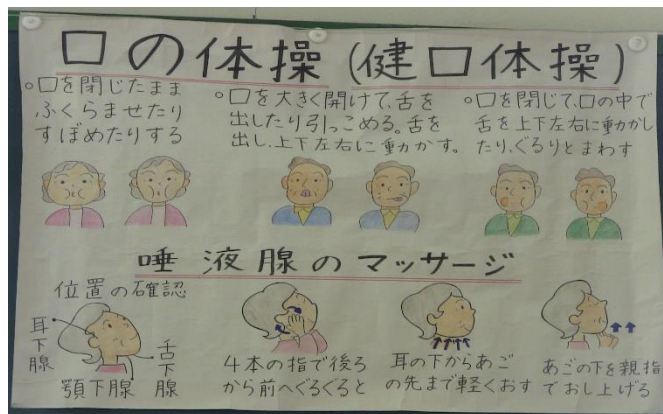 口の体操(健口体操)
○口を閉じたまま
ふくらませたり
すぼめたりする
○口を大きく開けて、舌を
出したり引っこめる。舌を
出し、上下左右に動かす。
○口を閉じて、口の中で
舌を上下左右に動かし
たり、ぐるりとまわす
唾液腺のマッサージ
位置の確認
耳下腺
顎下腺
舌下腺
4本の指で後ろ
から前へぐるぐると
耳の下からあご
の先まで軽くおす
あごの下を親指
でおし上げる